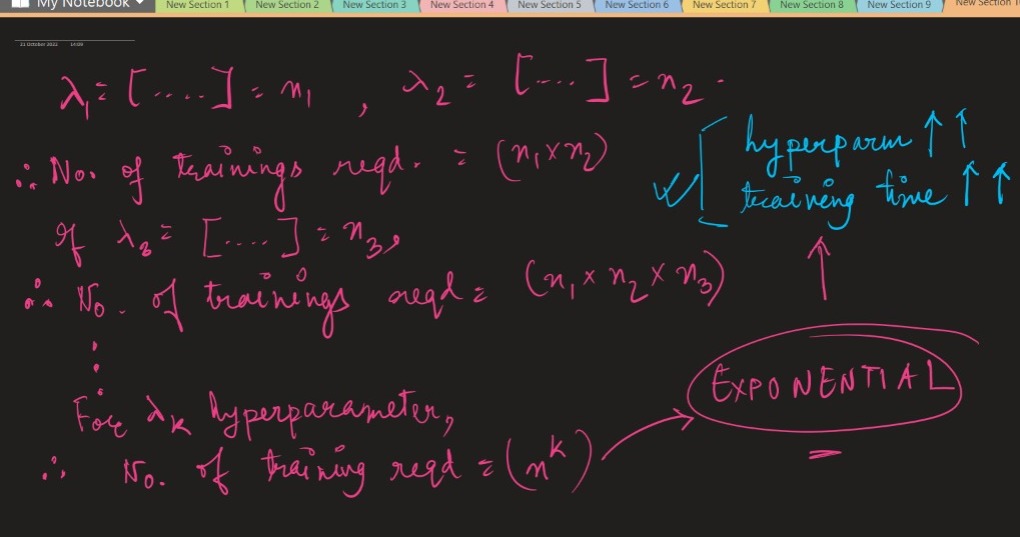 My Notebook
New Section 1 New Section 2 New Section 3 New Section 4 New Section 5 New Section 6 New Section 7 New Section 8 New Section 9 New Section
21 October 2022 14:09
λ₁ = [.....] = n₁ , λ₂ = [....] = n₂ .
∴ No. of trainings reqd. = (n₁ × n₂)
hyperparm ↑ ↑
training time ↑ ↑
If λ₃ = [.....] = n₃,
∴ No. of trainings reqd = (n₁ × n₂ × n₃) ↑
⋮
For λₖ hyperparameter,
∴ No. of training reqd = (nᵏ) → EXPONENTIAL